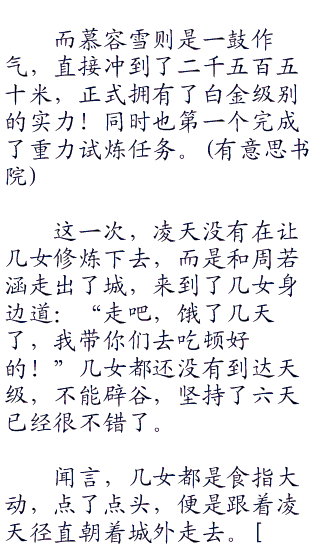 而慕容雪则是一鼓作
气，直接冲到了二千五百五
十米，正式拥有了白金级别
的实力！同时也第一个完成
了重力试炼任务。(有意思书
院)
这一次，凌天没有在让
几女修炼下去，而是和周若
涵走出了城，来到了几女身
边道：“走吧，饿了几天
了，我带你们去吃顿好
的！”几女都还没有到达天
级，不能辟谷，坚持了六天
已经很不错了。
闻言，几女都是食指大
动，点了点头，便是跟着凌
天径直朝着城外走去。[